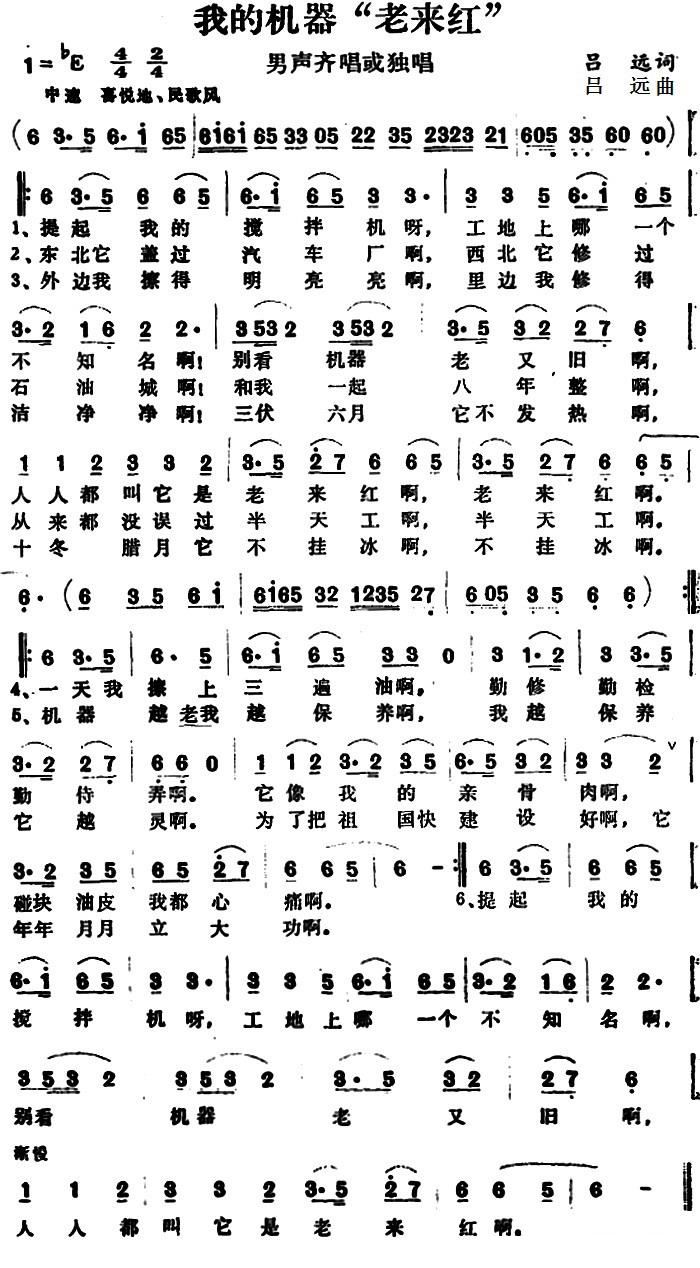 我的机器“老来红”
1=♭E 4/4 2/4 男声齐唱或独唱 吕远词
中速 喜悦地、民歌风 吕远曲
(6 3·5 6·i 65 | 6i6i 65 33 05 22 35 2323 21 | 605 35 60 60) |
6 3·5 6 65 | 6·i 65 3 3· | 3 3 5 6·i 65 |
1、提起 我的 搅拌机呀，工地上哪 一个
2、东北它盖过 汽车厂啊，西北它修过
3、外边我擦得 明亮亮啊，里边我修得
3·2 16 2 2· | 3532 3532 | 3·5 32 27 6 |
不知名啊！别看 机器 老又旧啊，
石油城啊！和我 一起 八年整啊，
洁净净啊！三伏 六月 它不发热啊，
1 1 2 3 3 2 | 3·5 27 6 65 | 3·5 27 6 65 |
人人都叫它是老来红啊，老来红啊。
从来都没误过半天工啊，半天工啊。
十冬腊月它不挂冰啊，不挂冰啊。
6· (6 35 6i | 6i65 32 1235 27 | 605 35 6 6) :|
6 3·5 | 6· 5 | 6·i 65 | 33 0 | 3 1·2 | 3 3·5 |
4、一天我擦上三遍油啊。勤修勤检
5、机器越老我越保养啊，我越保养
3·2 27 | 66 0 | 1 12 3·2 35 | 6·5 32 | 33 2 ∨
勤侍弄啊。它像我的亲骨肉啊，
它越灵啊。为了把祖国快建设好啊，它
3·2 35 | 65 27 | 6 65 | 6 - :| 6 3·5 6 65 |
碰块油皮我都心痛啊。 6、提起 我的
年年月月立大功啊。
6·i 65 3 3· | 3 3 5 6·i 65 | 3·2 16 2 2· |
搅拌机呀，工地上哪一个不知名啊，
3532 3532 | 3·5 32 | 27 6 |
别看 机器 老又旧啊，
渐慢
1 1 2 | 3 3 2 | 3·5 27 | 6 6 5 | 6 - |
人人都叫它是老来红啊。